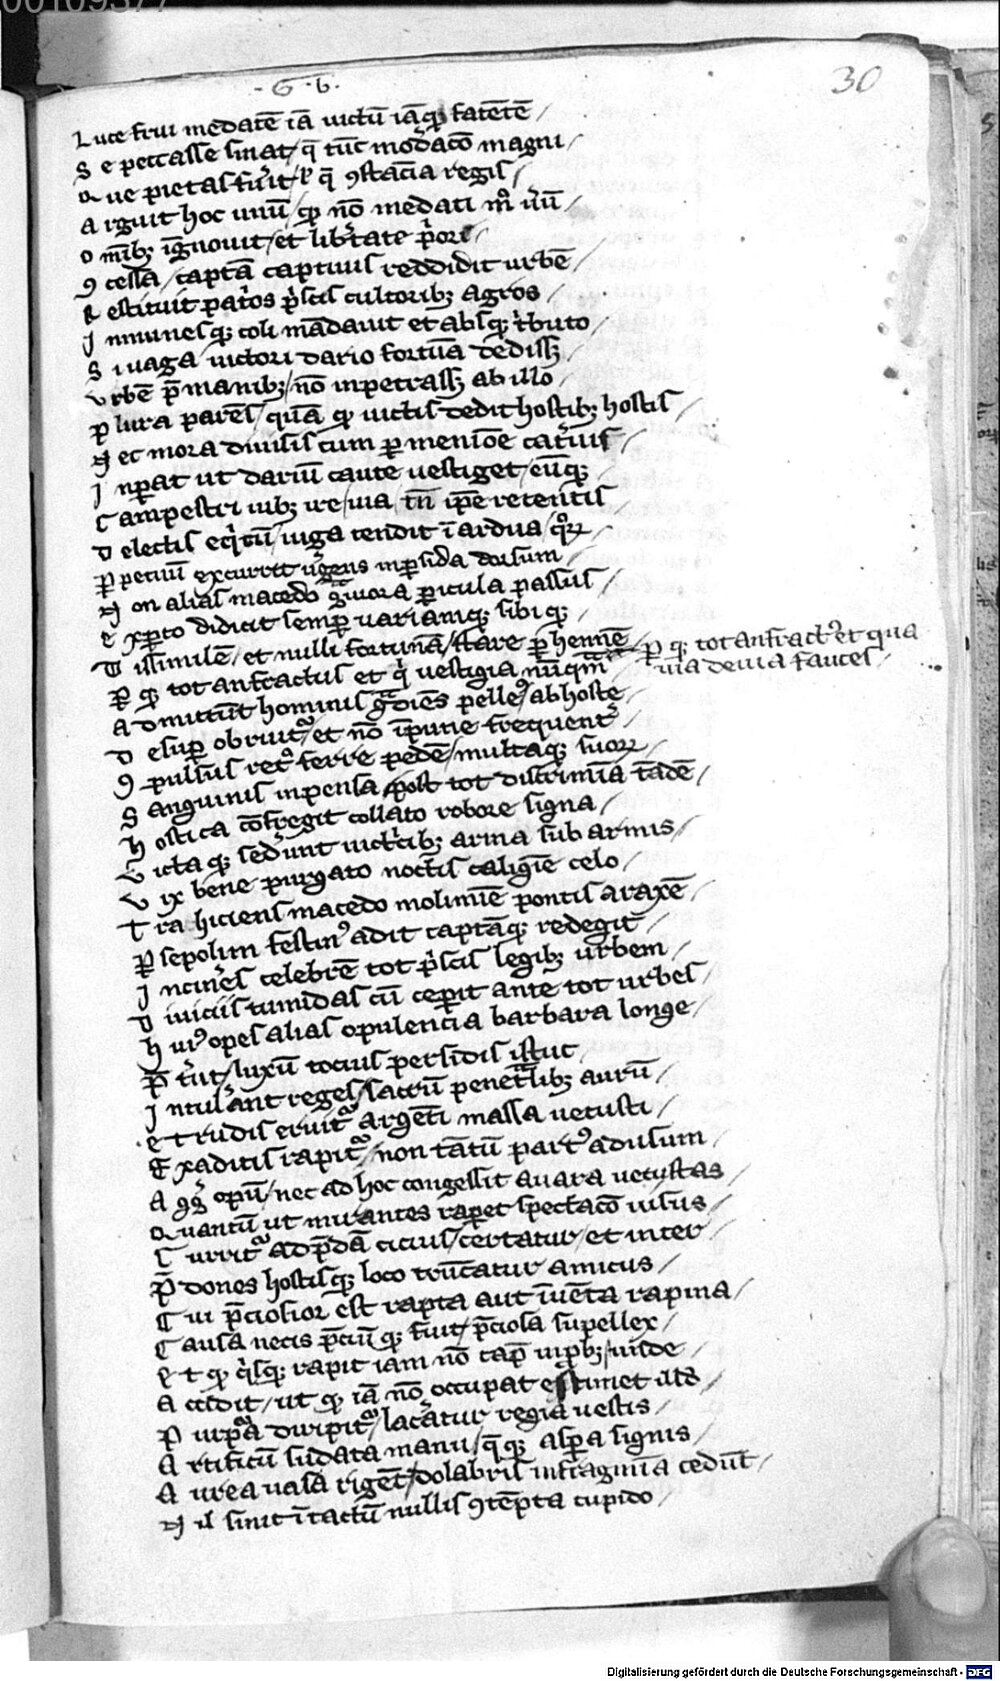 00109377
·G·b·
30
Luce frui medatē iā uictū iāq; fatētē /
Se peccasse sinat / q̄ tūc modacō magni /
Que pietas fu'it / ł q̄ ꝯstācia regis /
Arguit hoc unū / qͥ nō medati mͦ uū /
Omīb; ignouit / et lib'tate p'ori /
ꝯcessa / captā captiuus reddidit urbē /
Restituit pat'os p'scis cultorib; agros /
Inmunesq; coli mādauit et absq; t'buto /
Si uaga uictori dario fortuna dediss; /
Vrbē p̄ manib; / nō inpetrass; ab illo /
Plura parēs / quā qͥ uictis dedit hostib; hostis /
Nec mora diuisis cum ꝑmenione cat'uis /
Inꝑat ut dariū caute uestiget / eūq; /
Campestri iub; ire uia / tn̄ ip̄e retētis /
Delectis eq'tū / iuga tendit ī ardua / qͦꝝ /
Ꝑpetuū excurrit u'gens inꝑsida dorsum /
Non alias macedo gͣuiora ꝑicula passus /
Exꝑto didicit semꝑ uariamq; sibiq; /
Dissimilē / et nulli fortunā / stare ꝑhennē /
Ꝑ q; tot anfractus et q' uestigia nūqͣm
Ꝑ q; tot anfract' et qua
uia deuia fauces /
Admittūt hominis gͣdiēs pelle' ab hoste /
Desuꝑ obruit' / et nō īpune frequent' /
ꝯpulsus ret' ferre pedē / multaq; suoꝝ /
Sanguinis inpensa / post tot discrimīa tādē /
Hostica cōfregit collato robore signa /
Victaq; sed'unt uict'cib; arma sub armis /
Vix bene purgato noctis caligīe celo /
Tra hiciens macedo molimīe pontis araxē /
Ꝑsepolim festin' adit captāq; redegit /
In cin'es celebrē tot p'scis legib; urbem /
Diuiciis tumidas cū cep'it ante tot urbes /
Hui' opes alias opulencia barbara longe /
P̄t'iit / luxū tocius persidis istuc /
Intul'ant reges / sacrū penetͣlib; aurū /
Et rudis eruit' argēti massa uetusti /
Exaditis rapit' / non tātū part' ad usum
Aꝯg' opū / nec ad hoc congessit auara uetustas /
Quantū ut mirantes rap'et spectacō uisus /
Currit' ad p̄dā cicius / certatur / et inter /
P̄dones hostisq; loco trūcatur amicus /
Cui p̄ciosior est rapta aut īuēta rapina /
Causa necis p̄ciū q; fuit / p̄ciosa supellex /
Et qͥ q'sq; rapit iam nō cap' inp'b; / inde /
Accidit / ut qͥ iā nō occupat estimet illd' /
Purpͣa diripit' / lac'atur regia uestis /
Artificū sudata manu / q̄q; aspͣa signis /
Aurea uasa rigēt / dolabris inf'agmīa cedūt /
Nil sinit ītactū nullis ꝯtēpta cupido /
Digitalisierung gefördert durch die Deutsche Forschungsgemeinschaft - DFG